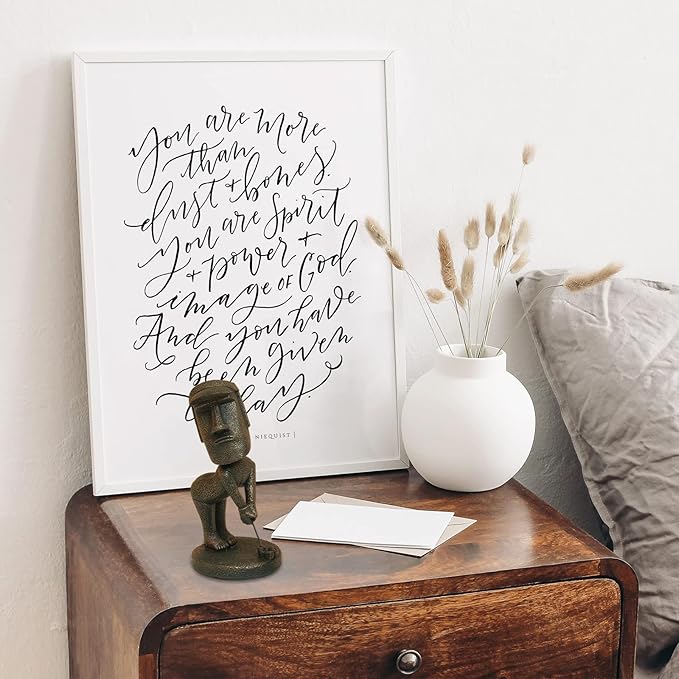 You are more
than
dust + bones.
You are spirit
+ power +
image of God.
And you have
been given
day.
NIEQUIST |